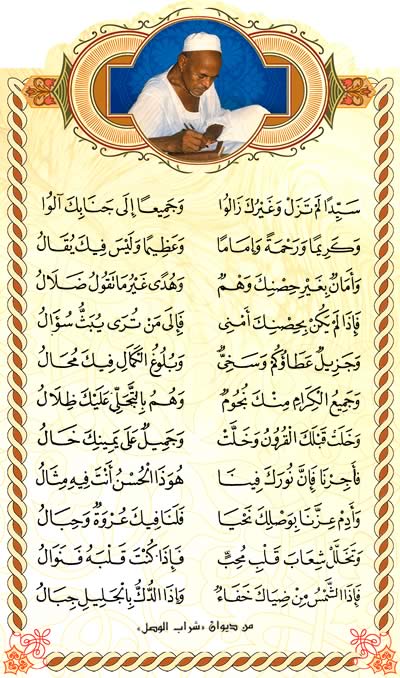 سَيِّدًا لَمْ تَزَلْ وَغَيْرُكَ زَالُوا وَجَمِيعًا إِلَى جَنَابِكَ آلُوا
وَكَرِيمًا وَرَحْمَةً وَإِمَامًا وَعَظِيمًا وَلَيْسَ فِيكَ يُقَالُ
وَأَمَانٌ بِغَيْرِ حِصْنِكَ وَهْمٌ وَهُدًى غَيْرُ مَا تَقُولُ ضَلَالُ
فَإِذَا لَمْ يَكُنْ بِحِصْنِكَ أَمْنِي فَإِلَى مَنْ تُرَى يُبَثُّ سُؤَالُ
وَجَزِيلٌ عَطَاؤُكُمْ وَسَخِيٌّ وَبُلُوغُ الْكَمَالِ فِيكَ مُحَالُ
وَجَمِيعُ الْكِرَامِ مِنْكَ نُجُومٌ وَهُمُ بِالتَّجَلِّي عَلَيْكَ ظِلَالُ
وَخَلَتْ قَبْلَكَ الْقُرُونُ وَخَلَّتْ وَجَمِيلٌ عَلَى يَمِينِكَ خَالُ
فَأَجِرْنَا فَإِنَّ نُورَكَ فِينَا هُوَ ذَا الْحُسْنُ أَنْتَ فِيهِ مِثَالُ
وَأَدِمْ عِزَّنَا بِوَصْلِكَ نَحْيَا فَلَنَا فِيكَ عُرْوَةٌ وَحِبَالُ
وَتَخَلَّلْ شِعَابَ قَلْبِ مُحِبٍّ فَإِذَا كُنْتَ قَلْبَهُ فَنَوَالُ
فَإِذَا الشَّمْسُ مِنْ ضِيَاكَ خَفَاءٌ وَإِذَا الدُّكُّ بِانْجَلِيلِ جِبَالُ
من ديوان «شراب الوصل»